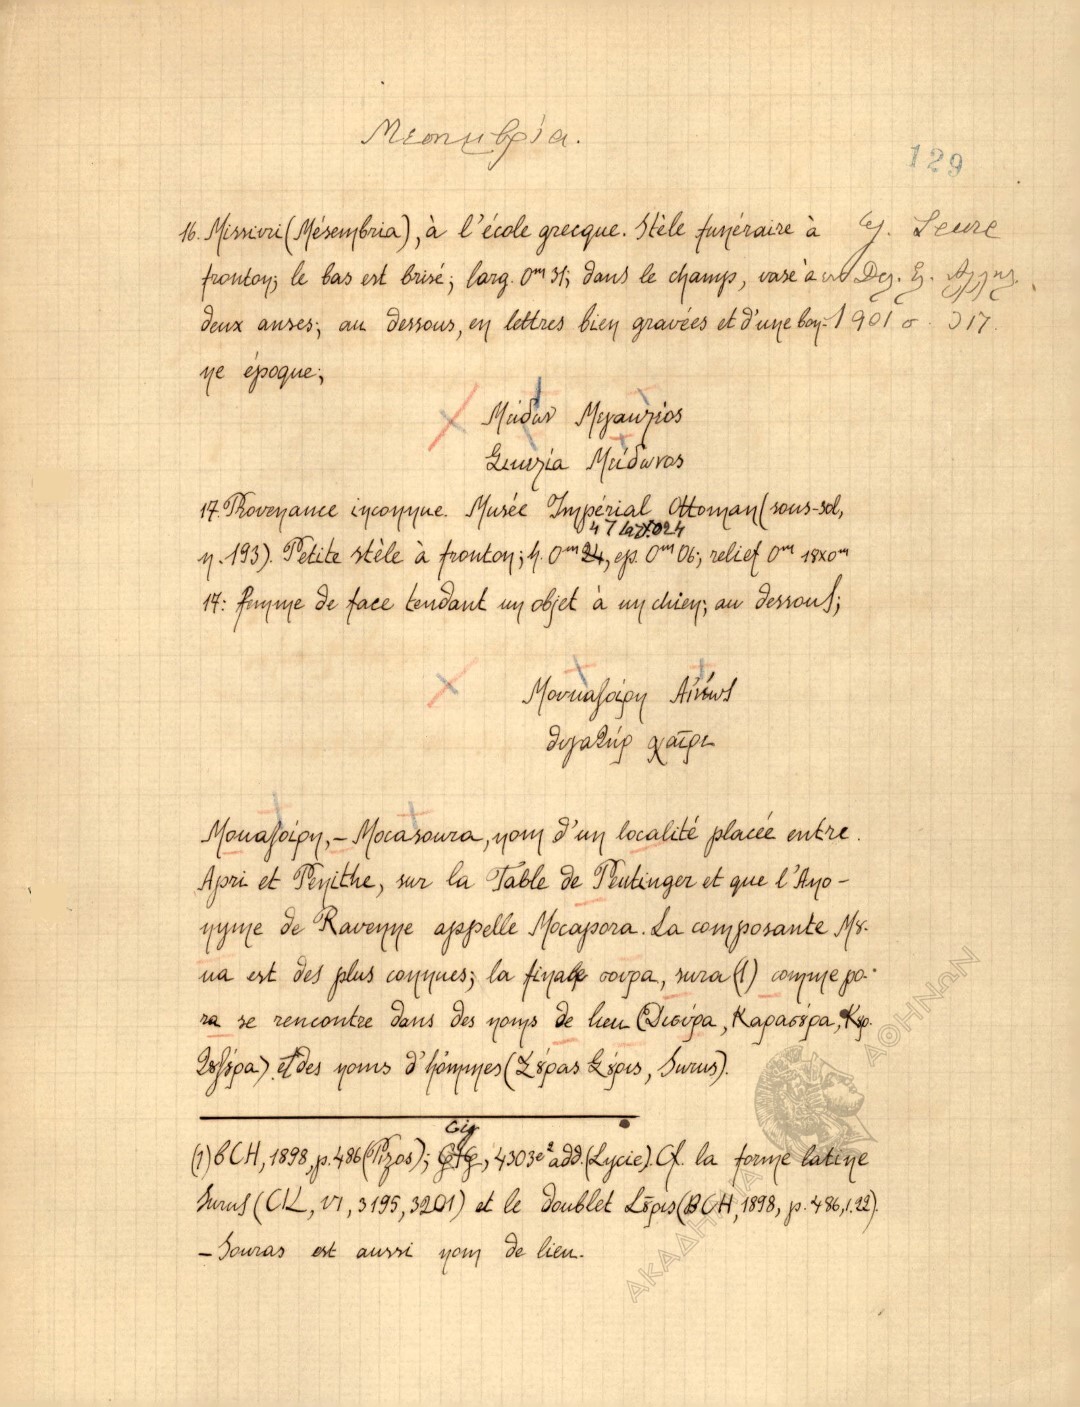 Μεσημβρία.
129
16. Missivri (Mésembria), à l'école grecque. Stèle funéraire à
fronton; le bas est brisé; larg. 0m 31; dans le champ, vase à
deux anses; au dessous, en lettres bien gravées et d'une bon-
ne époque;
1901 σ. 317.
Μείδων
Μείδωνος
17. Provenance inconnue. Musée Impérial Ottoman (sous-sol,
n. 193). Petite stèle à fronton; h. 0m 24, ep. 0m 06; relief 0m 18x0m
14: femme de face tendant un objet à un chien; au dessous;
Μουκασοίρη
θυγατήρ χαῖρε
Μουκασοίρη, – Mocasoura, nom d'un localité placée entre
Apri et Perinthe, sur la Table de Peutinger et que l'Ano-
nyme de Ravenne appelle Mocapora. La composante Μȣ-
κα est des plus connues; la finale σουρα, sura (1) comme po-
ra se rencontre dans des noms de lieu (Δισȣ́ρα, Καρασȣ́ρα,
et des noms d'hommes (Σȣ́ρας Σȣ́ρις, Surus).
(1) BCH, 1898, p. 486 (Pizos); Cig, 4303e² add. (Lycie). Cf. la forme latine
Surus (CIL, VI, 3195, 3201) et le doublet Σȣ͂ρις (BCH, 1898, p. 486, l. 22).
– Souras est aussi nom de lieu.
ΑΚΑΔΗΜΙΑ ΑΘΗΝΩΝ